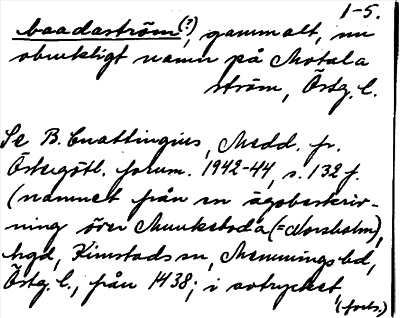 1-5.
baadaström(?), gammalt, nu
obrukligt namn på Motala
ström, Östg. l.
Se B. Cnattingius, Medd. fr.
Östergötl. fornm. 1942-44, s. 132 f.
(namnet från en ägobeskriv-
ning över Munkeboda (=Norsholm),
hgd, Kimstads sn, Memmings hd,
Östg. l., från 1438; i avtrycket
(forts.)